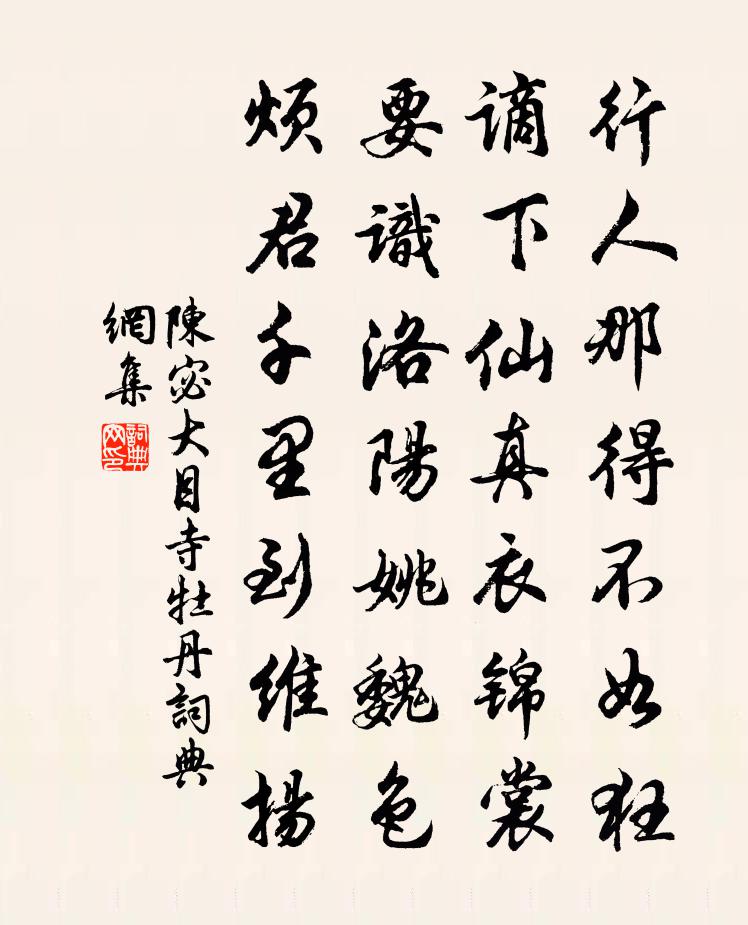 行人那得不如狂
謫下仙真衣錦裳
要識洛陽姚魏色
煩君千里到維揚
陳宓大目寺牡丹詞典
網集
詞典網印